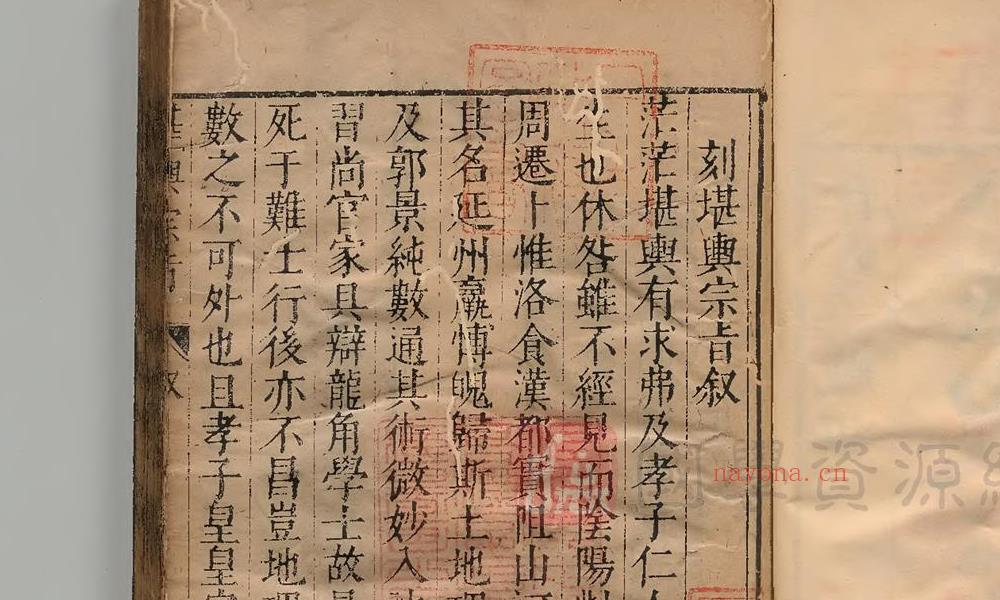 刻堪輿宗旨叙
茫茫堪輿有求弗及孝子仁人
生也休咎雖不經見而陰陽
周遷卜惟洛食漢都實阻山
其名延州嬴愽魄歸斯土地理
及郭景純數通其術微妙入
習尚官家具辯龍角學士故
死于難士行後亦不昌豈地理
數之不可外也且孝子皇皇
堪輿宗旨
叙
nayona.cn
學資源